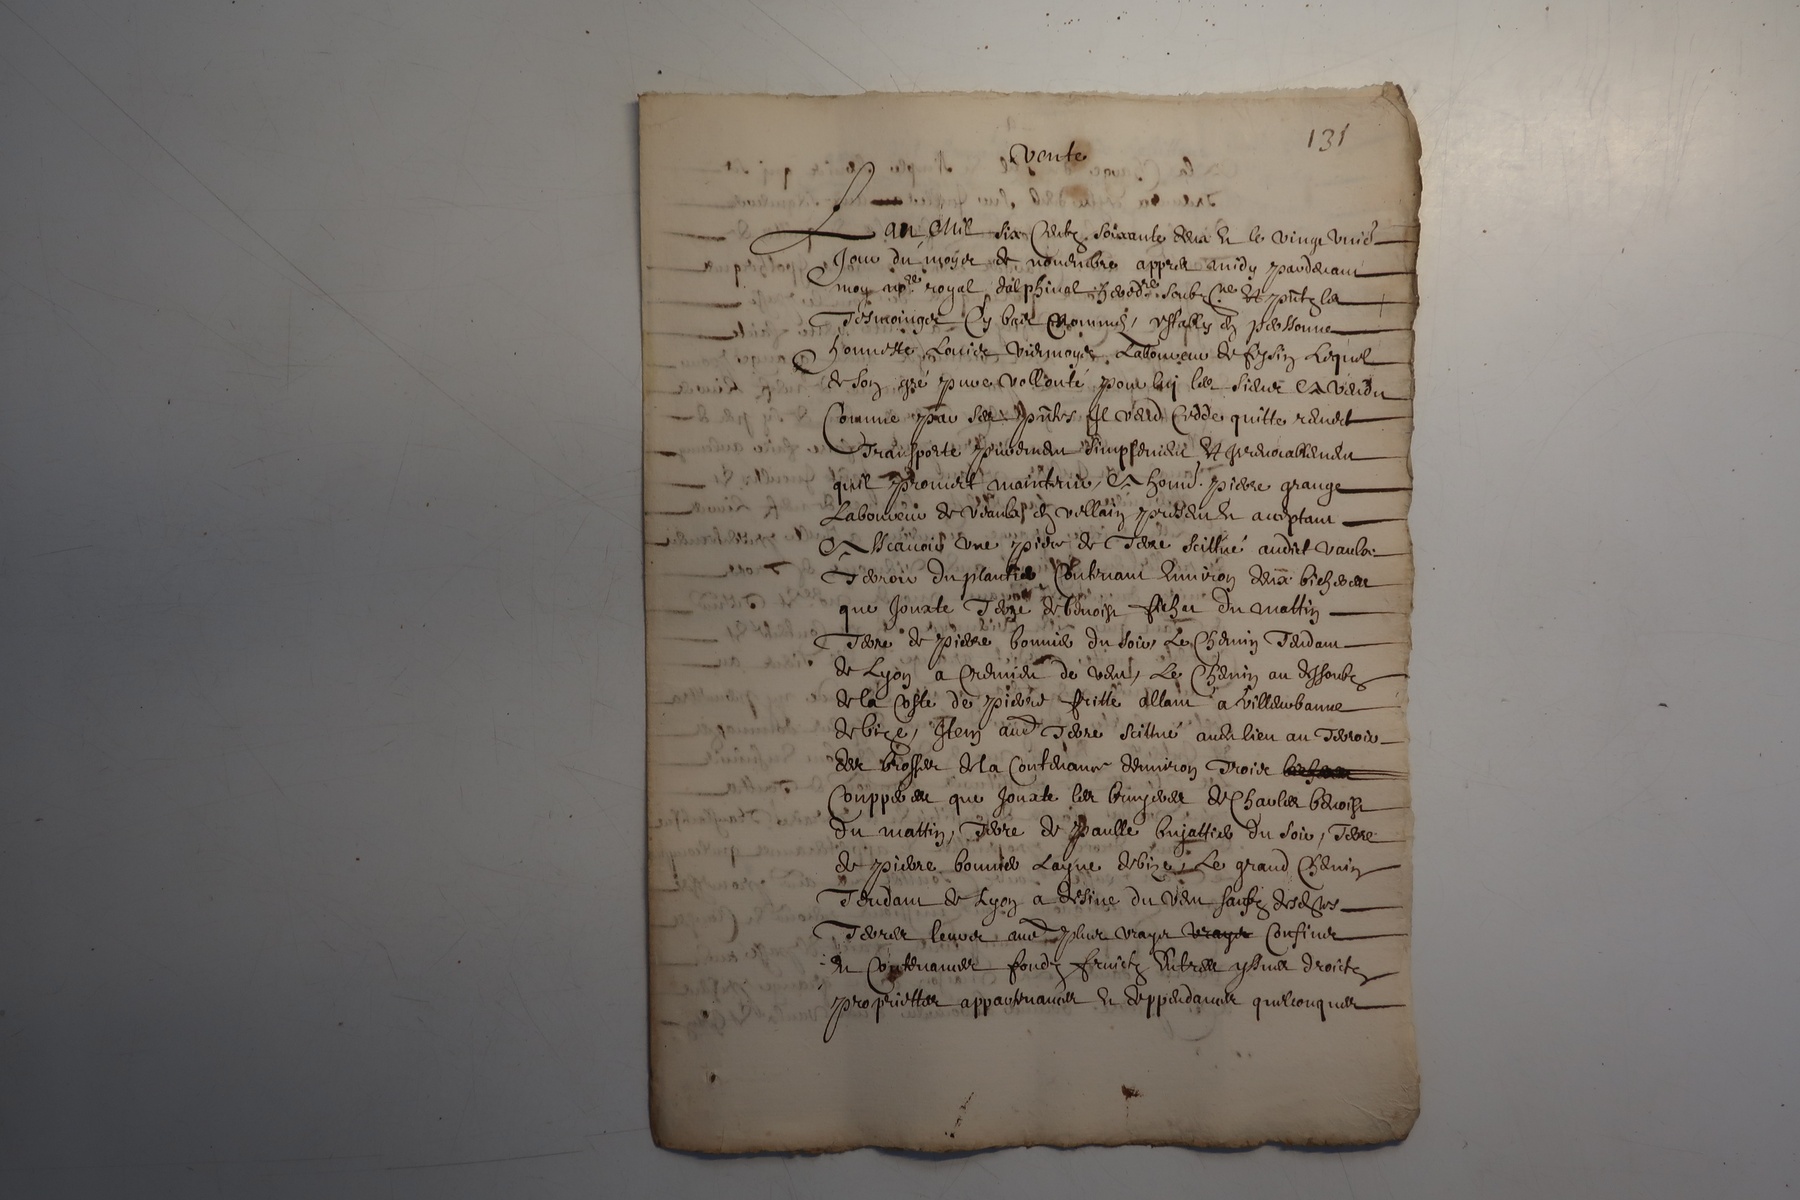 131
Vente
L an Mil six Centz soixante deux & le vingt unie
Jour du moys de novembre appres midy pardevant
moy nore royal dalphinal heredre soubzne et pntz les
Tesmoinges Cy bas Nommes, estably en personne
honneste Louis Viermoyes Laboureur de feysin Lequel
de son gré pure vollonté pour luy les siens A vendu
Comme par ses pntes Il vend Cedde quitte remet
Transporte purement simplement et irrevocablement
quil promet maintenir, A honn. pierre grange
Laboureur de Vaulx en vellain present & aceptant
A Scavoir une piece de Terre scittué audict vaulx
Terroir du plantier Contenant Environ deux bicheres
que Jouxte Terre de benoist du mattin
Terre de pierre bonnier du soir, Le Chemin Tendant
de Lyon a Cremieu de vent, Le Chemin au dessoubz
de la Coste de pierre fritte allant a Villeurbanne
de bize, Item aud Terre scittué aud lieu au Terroir
des brosses de la Contenance denviron Trois
Couppees que Jouxte les bruyeres de Charles benoist
du mattin, Terre de Paulle bujattier du soir, Terre
de pierre bonnier Layne de bize, Le grand Chemin
Tendant de Lyon a desine du vent saufz desdes
Terres leurs aud plus vrays vrays Confines
& Contenances fondz fruictz Entrees yssues droictz
proprietes appartenances & deppendances quelconques